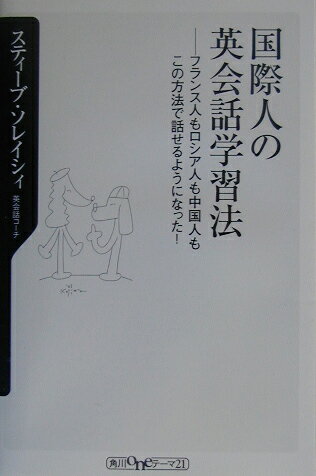 国際人の
英会話学習法
——フランス人もロシア人も中国人も
この方法で話せるようになった!
スティーブ・ソレイシィ
英会話コーチ
角川oneテーマ21